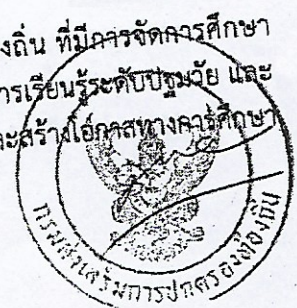 งถิ่น ที่มีการจัดการศึกษา
การเรียนรู้ระดับปฐมวัย และ
ละสร้างโอกาสทางการศึกษา
กรมส่งเสริมการปกครองท้องถิ่น